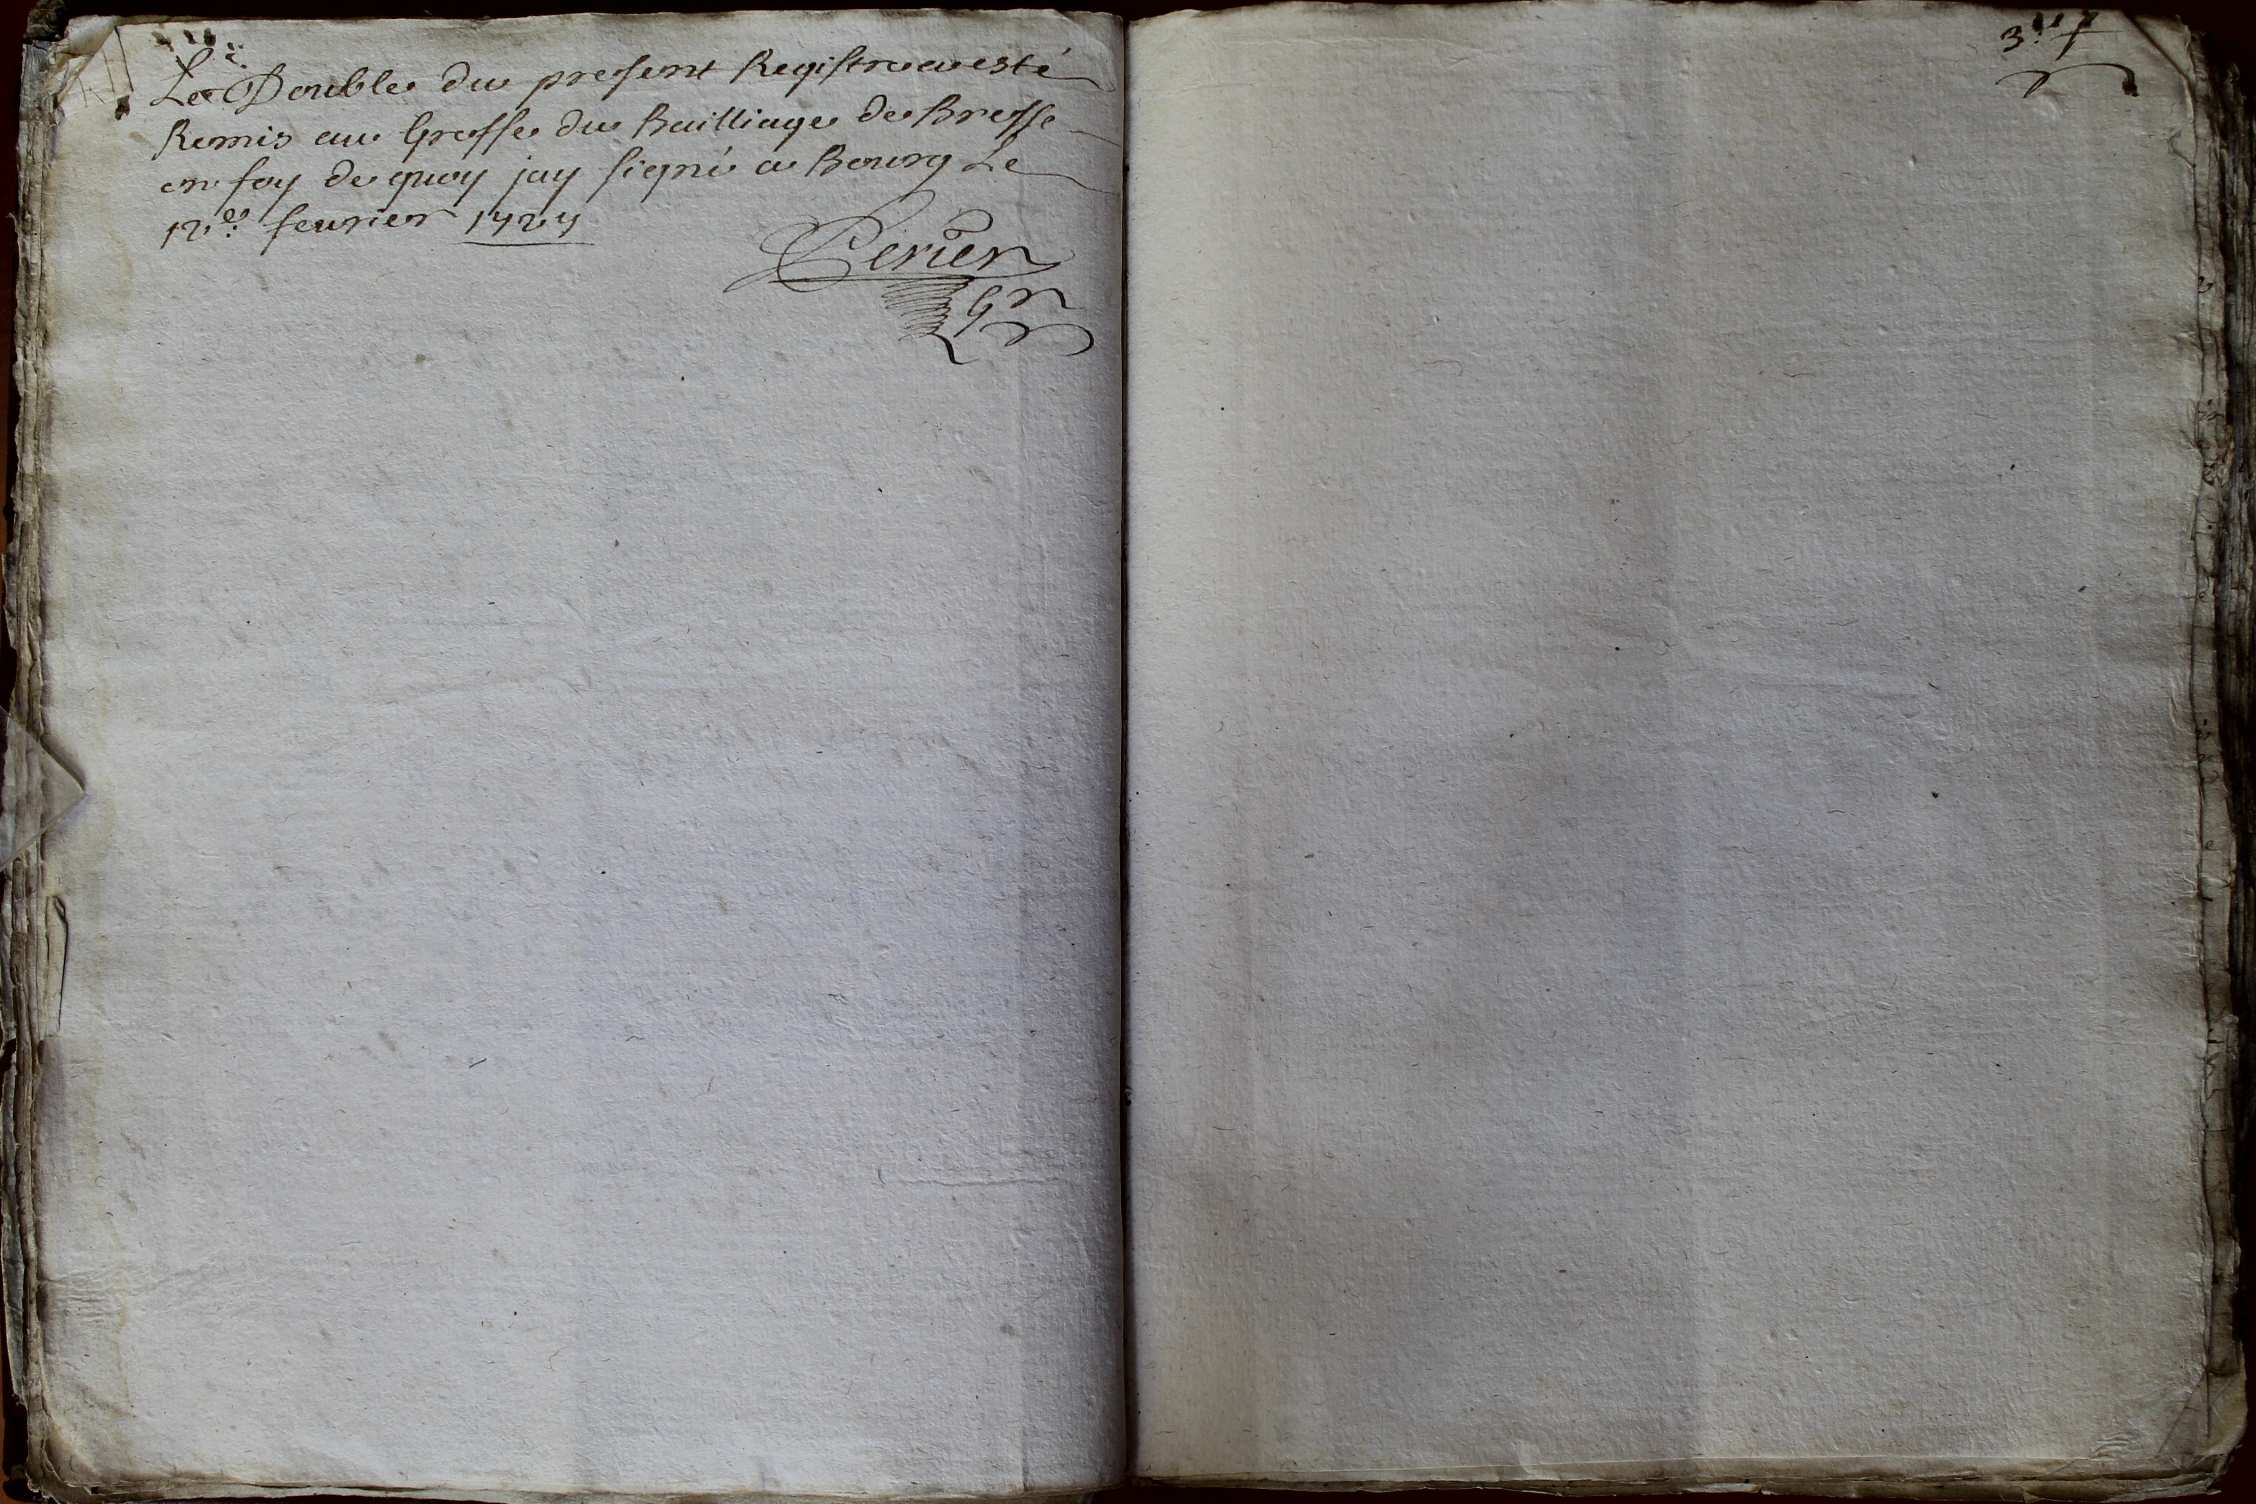 Le Double du present Registre a esté
Remis au Greffe du Bailliage de Bresse
en foy de quoy jay signé a Bourg Le
12e: fevrier 1727
Perier
Gr
3e f